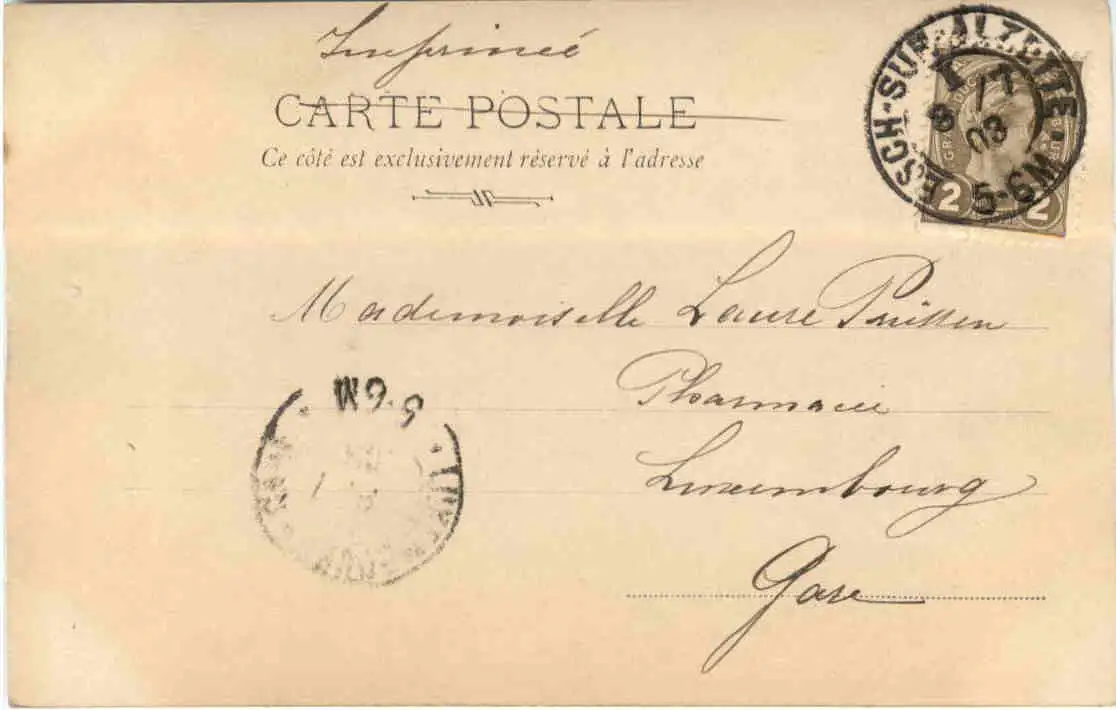 Imprimé
CARTE POSTALE
Ce côté est exclusivement réservé à l'adresse
ESCH-SUR-ALZETTE
03
5-6M
2 2
Mademoiselle Laure
Pharmacie
Luxembourg
Gare